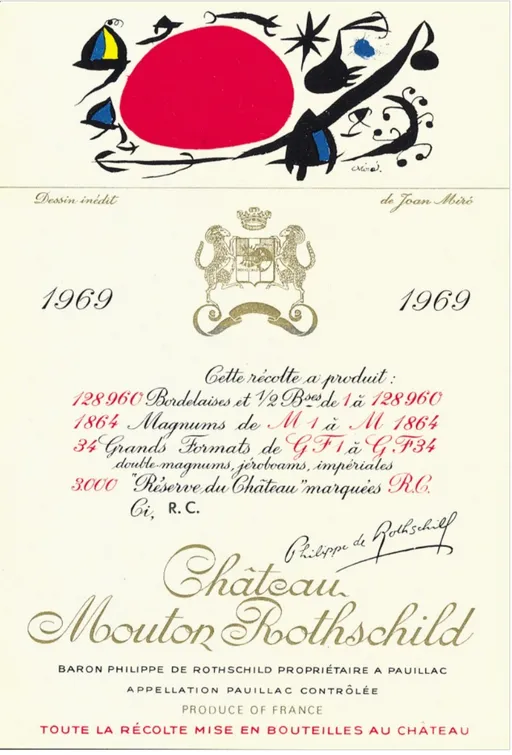 Miró.
Dessin inédit de Joan Miró
1969 1969
Cette récolte a produit :
128960 Bordelaises et 1/2 Bses de 1 à 128960
1864 Magnums de M 1 à M 1864
34 Grands Formats de G F 1 à G.F 34
double-magnums, jéroboams, impériales
3.000 "Réserve du Château" marquées R.C.
Ci, R.C.
Philippe de Rothschild
Château
Mouton Rothschild
BARON PHILIPPE DE ROTHSCHILD PROPRIÉTAIRE A PAUILLAC
APPELLATION PAUILLAC CONTRÔLÉE
PRODUCE OF FRANCE
TOUTE LA RÉCOLTE MISE EN BOUTEILLES AU CHÂTEAU